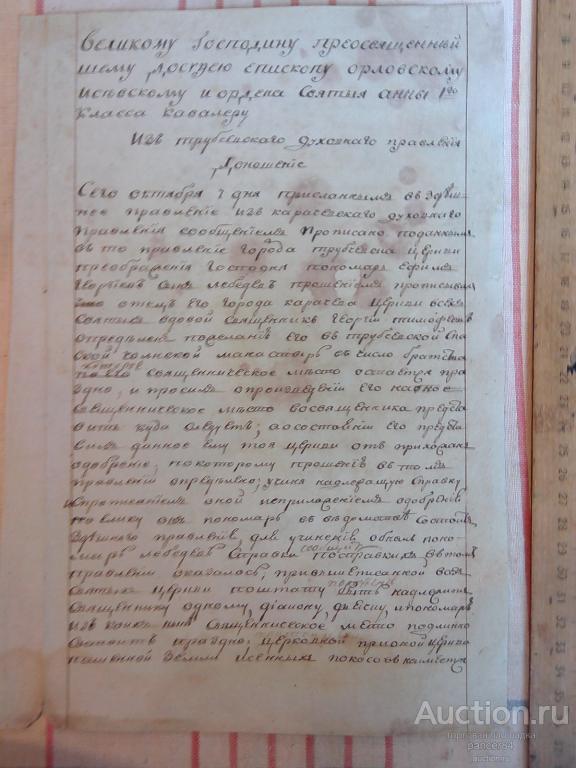 Великому Господину преосвященнѣй
шему Досифею епископу орловскому
и севскому и ордена Святыя анны 1го
класса кавалеру
Изъ трубчевскаго духовнаго правленiя
Доношенiе
Сего октября дня присланнымъ въ здѣш
нее правленiе изъ карачевскаго духовнаго
правленiя сообщенiемъ прописано поданнымъ
въ то правленiе города трубчевска церкви
преображенiя Господня пономарь Ефимъ
Георгiевъ сынъ лебедевъ прошенiемъ прописывая
отецъ его города карачева церкви всехъ
святыхъ вдовой священникъ Георгiй тимофеевъ
опредѣленъ по желанiю его въ трубчевской Спа
ской чолнской манастырь въ число братства
священническое мѣсто остается пра
здно, и просилъ о произведенiи его на оное
священническое мѣсто во священника предста
вить куда следуетъ, а о состоянiи его предста
вилъ данное ему тоя церкви отъ прихожанъ
одобренiе, по которому прошенiю въ томъ
правленiи опредѣлено: учиня надлежащую справку
с прописанiемъ оной и с приложенiемъ одобренiя
поелику онъ пономарь въ вѣдомствѣ состоитъ
здѣшняго правленiя, для учиненiя объ немъ поно
марѣ лебедевѣ справки сообщить по справкѣ же въ томъ
правленiи оказалось, при вышеписанной всехъ
святыхъ церкви по штату быть надлежитъ
священнику одному, дiакону, дьячку, и пономарю
изъ коихъ нынѣ священническое мѣсто подлинно
состоитъ праздно: церковной при оной церкви
пашенной земли и сенныхъ покосовъ имѣется
Аукцион.ru
торговая площадка
pancer64
auction.ru